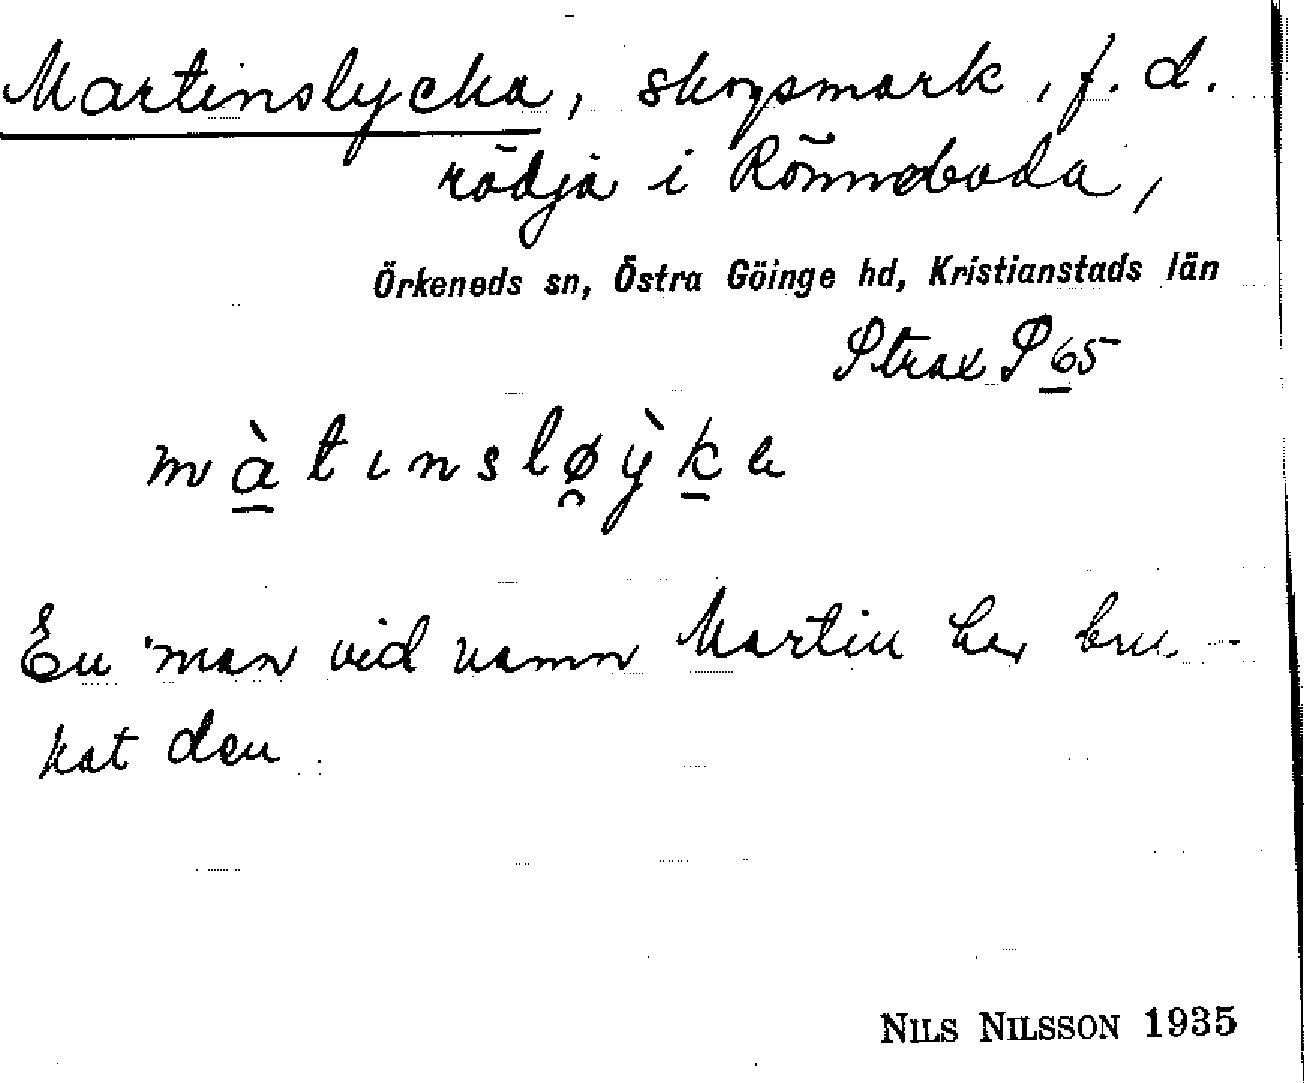 Martinslycka, skogsmark, f. d.
rödja i Rönneboda,
Örkeneds sn, Östra Göinge hd, Kristianstads län
Strax S 65
màtɩnsløỳka
En man vid namn Martin har bru-
kat den
NILS NILSSON 1935